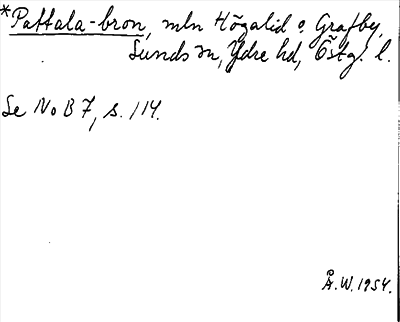 *Pattala-bron, mln Högalid o. Grafby,
Sunds sn, Ydre hd, Östg. l.
Se No B 7, s. 114.
Å.W. 1954.